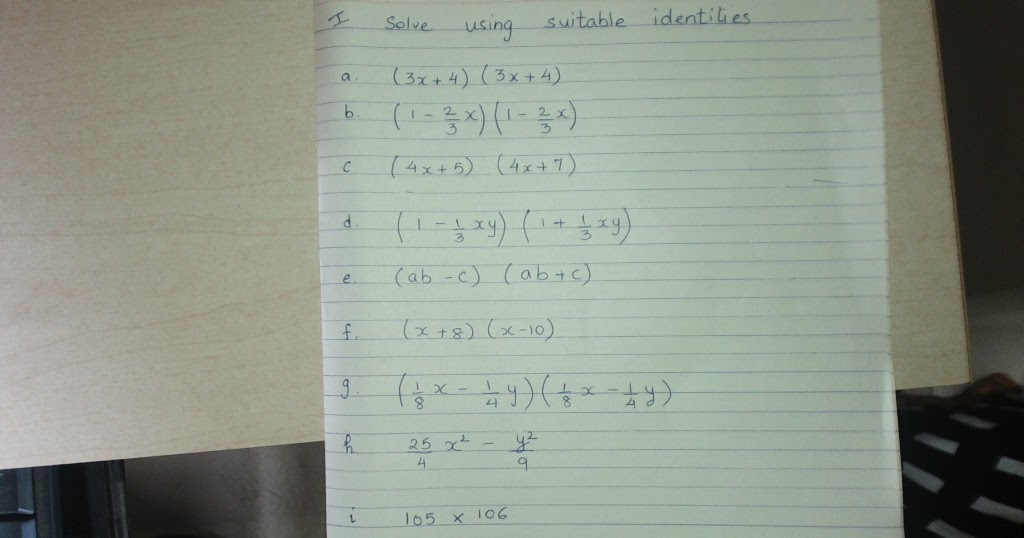 I Solve using suitable identities
a. (3x + 4) (3x + 4)
b. (1 - 2/3 x) (1 - 2/3 x)
c (4x + 5) (4x + 7)
d. (1 - 1/3 xy) (1 + 1/3 xy)
e. (ab - c) (ab + c)
f. (x + 8) (x - 10)
g. (1/8 x - 1/4 y) (1/8 x - 1/4 y)
h 25/4 x² - y²/9
i 105 x 106